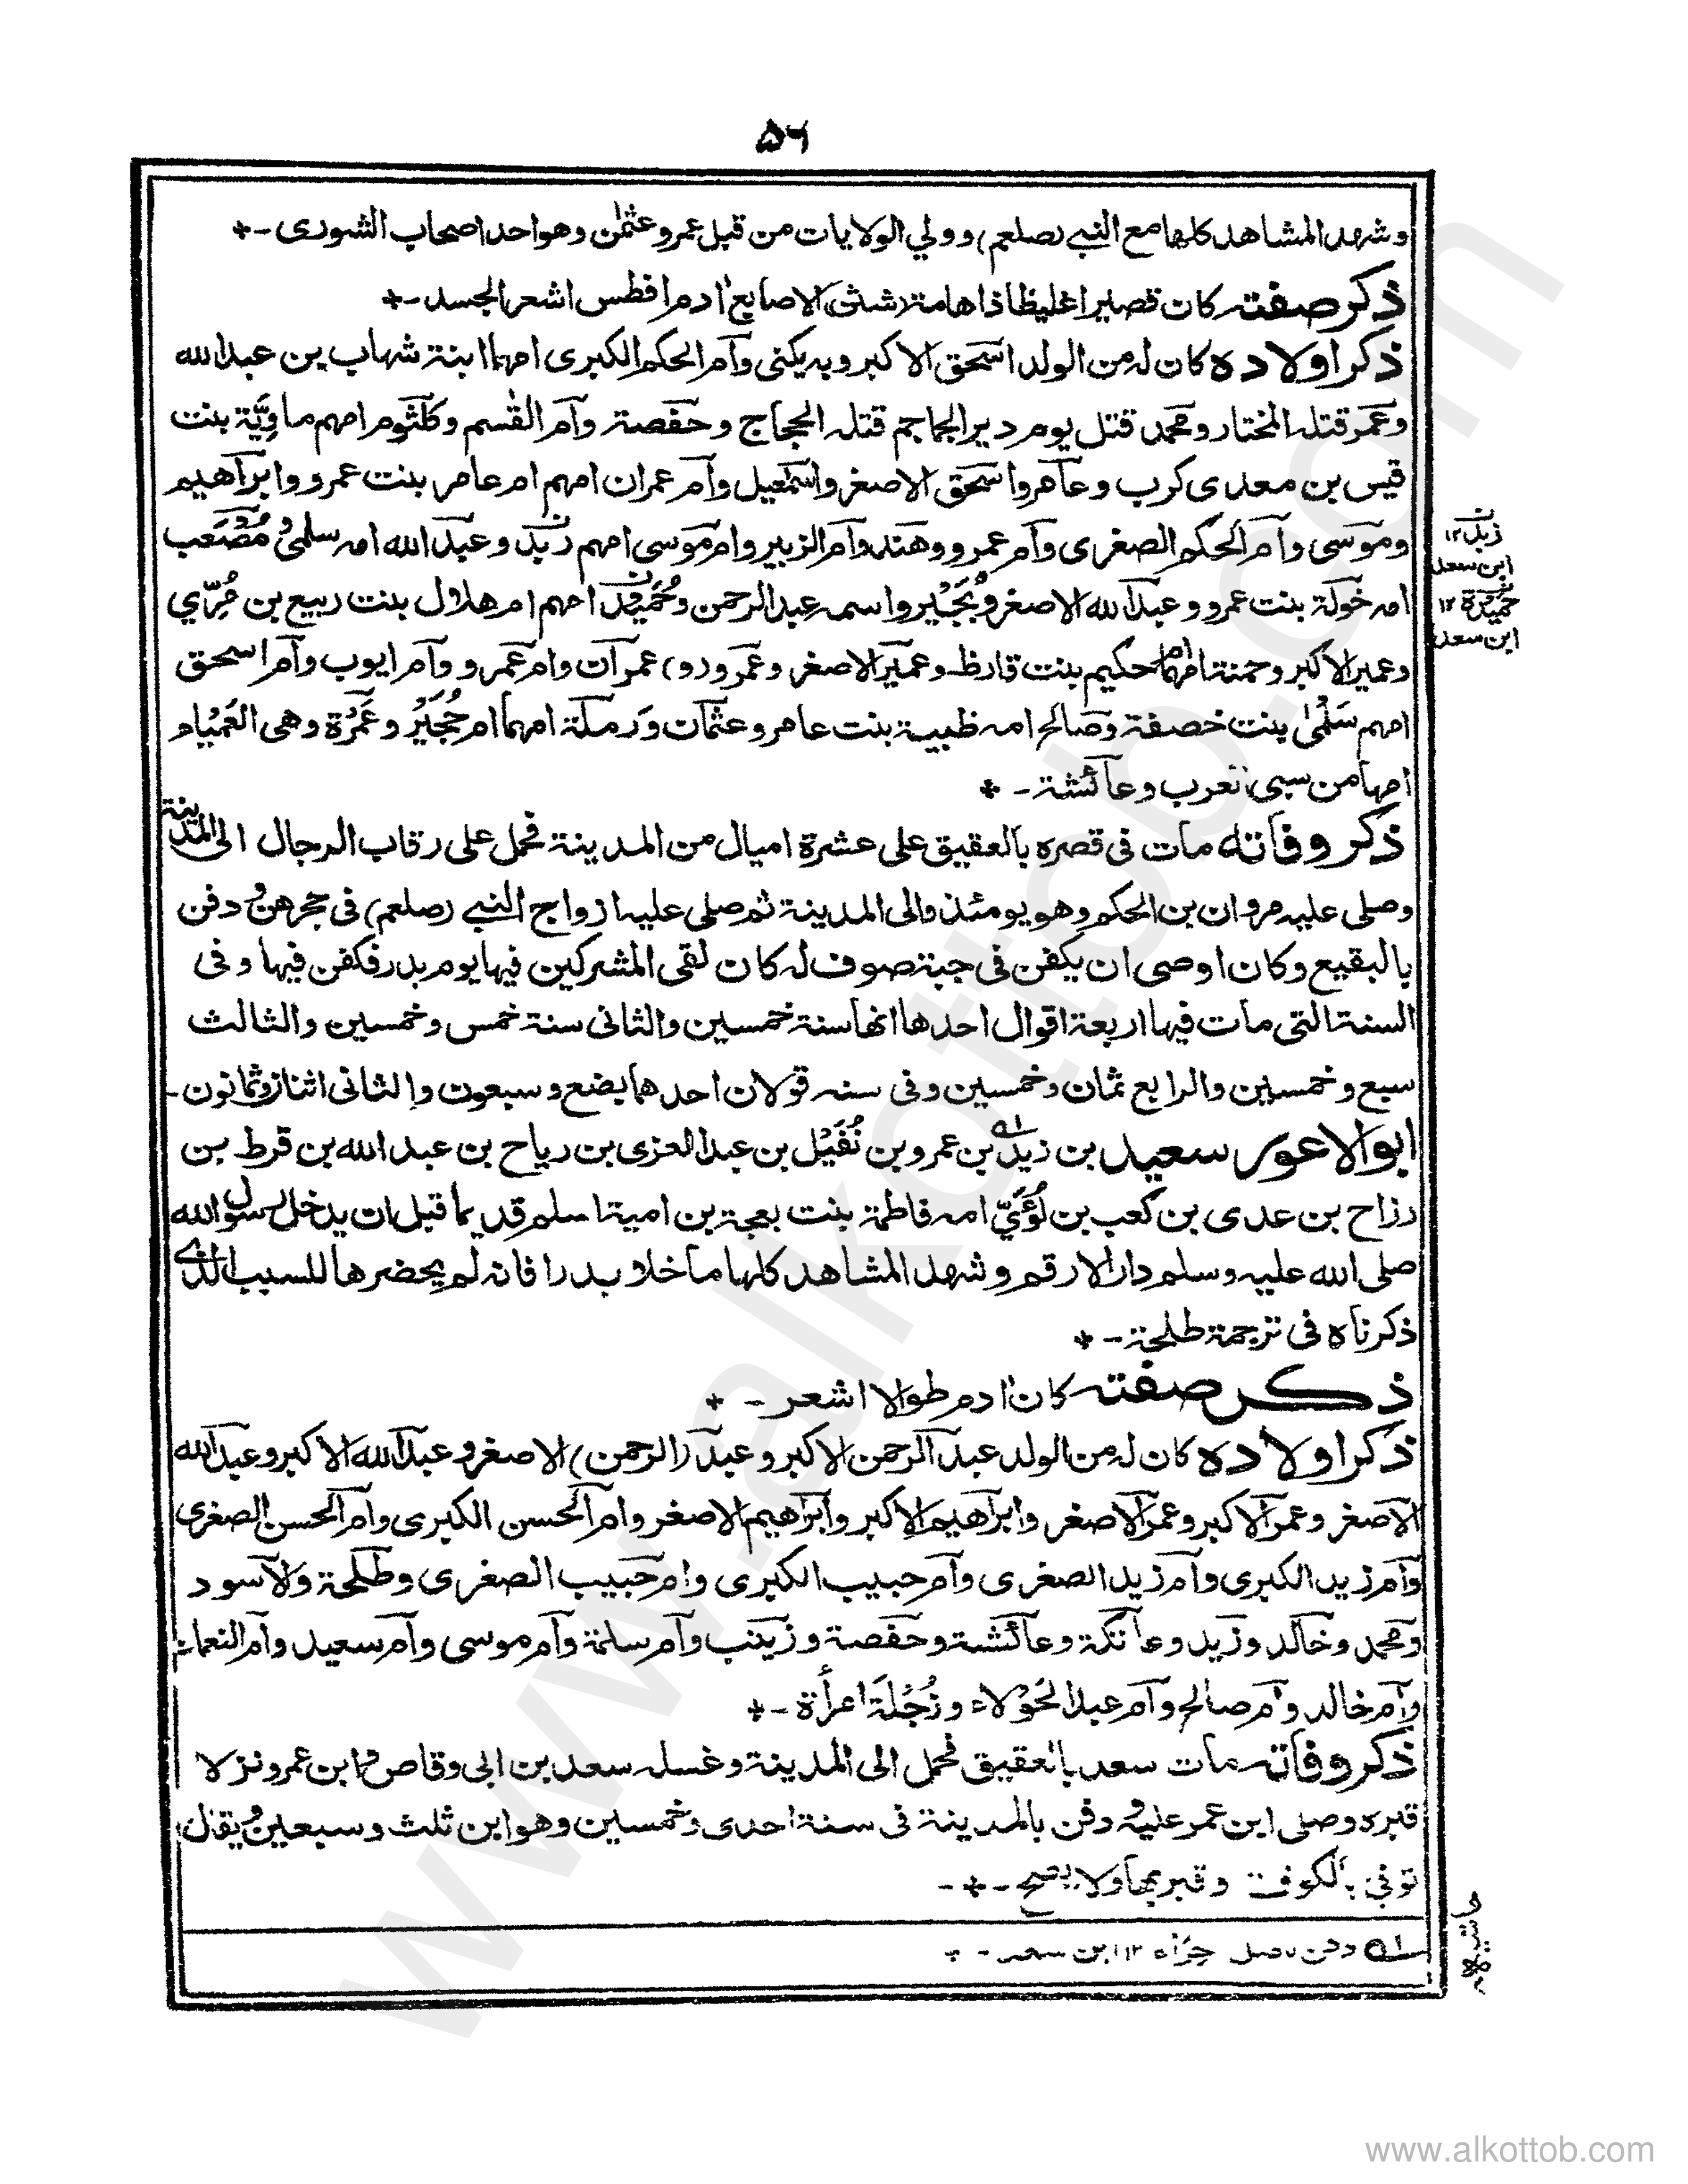 ۵۶
وشهد المشاهد كلها مع النبي (صلعم) وولي الولايات من قبل عمر وعثمٰن وهو احد اصحاب الشورى -*
ذكر صفته كان قصيرا غليظا ذا هامة (شثن) الاصابع اٰدم افطس اشعر الجسد -*
ذكر اولاده كان له من الولد اسحق الاكبر وبه يكنى وام الحكم الكبرى امهما ابنة شهاب بن عبد الله
وعمر قتله المختار ومحمد قتل يوم دير الجماجم قتله الحجاج وحفصة وام القٰسم وكلثوم امهم ماوِيَّة بنت
قيس بن معدى كرب وعامر واسحق الاصغر واسمٰعيل وام عمران امهم ام عامر بنت عمرو وابراهيم
وموسى وام الحكم الصغرى وام عمرو وهند وام الزبير وام موسى امهم زَبَد وعبد الله امه سلمىٰ ومُصْعَب
امه خولة بنت عمرو وعبد الله الاصغر وبُجَيْر واسمه عبد الرحمن وحُمَيْد امهم ام هلال بنت ربيع بن مُرِّي
وعمير الاكبر وحمنة امهما ام حكيم بنت قارظ وعمير الاصغر وعمرو (و) عمران وام عمرو وام ايوب وام اسحق
امهم سَلْمٰى بنت خصفة وصالح امه ظبية بنت عامر وعثمان وَرملة امهما ام حُجَيْر وعَمْرَة وهى العَمْيَاء
امها من سبى العرب وعائشة -*
ذكر وفاته مات فى قصره بالعقيق على عشرة اميال من المدينة فحمل على رقاب الرجال الى المدينة
وصلى عليه مروان بن الحكم وهو يومئذ والى المدينة ثم صلى عليه ازواج النبي (صلعم) فى حجرهن ودفن
بالبقيع وكان اوصى ان يكفن فى جبة صوف له كان لقى المشركين فيها يوم بدر فكفن فيها وفى
السنة التى مات فيها اربعة اقوال احدها انها سنة خمسين والثانى سنة خمس وخمسين والثالث
سبع وخمسين والرابع ثمان وخمسين وفى سنه قولان احدهما بضع وسبعون والثانى اثنان وثمانون -
ابو الاعور سعيد بن زيد ؎۱ بن عمرو بن نُفَيْل بن عبد العزى بن رياح بن عبد الله بن قرط بن
رزاح بن عدى بن كعب بن لُؤَيّ امه فاطمة بنت بعجة بن امية اسلم قديما قبل ان يدخل رسول الله
صلى الله عليه وسلم دار الارقم وشهد المشاهد كلها ما خلا بدرا فانه لم يحضرها للسبب الذى
ذكرناه فى ترجمة طلحة -*
ذكر صفته كان اٰدم طوالا اشعر -*
ذكر اولاده كان له من الولد عبد الرحمن الاكبر وعبد (الرحمن) الاصغر وعبد الله الاكبر وعبد الله
الاصغر وعمر الاكبر وعمر الاصغر وابراهيم الاكبر وابراهيم الاصغر وام الحسن الكبرى وام الحسن الصغرى
وام زيد الكبرى وام زيد الصغرى وام حبيب الكبرى وام حبيب الصغرى وطلحة والاسود
ومحمد وخالد وزيد وعاتكة وعائشة وحفصة وزينب وام سلمة وام موسى وام سعيد وام النعمان
وام خالد وام صالح وام عبد الحَوْلاء وزُجْلَة امرأة -*
ذكر وفاته مات سعد بالعقيق فحمل الى المدينة وغسله سعد بن ابى وقاص وابن عمر ونزلا
قبره وصلى ابن عمر عليه ودفن بالمدينة فى سنة احدى وخمسين وهو ابن ثلث وسبعين ويقال
توفى بالكوفة وقبر بها ولا يصح -*-
؎۱ وفى الاصل ۱۲ ابن سعد -
زبد ۱۲
ابن سعد
حُمَيْدَة ۱۲
ابن سعد
حاشيه
www.alkottob.com
www.alkottob.com